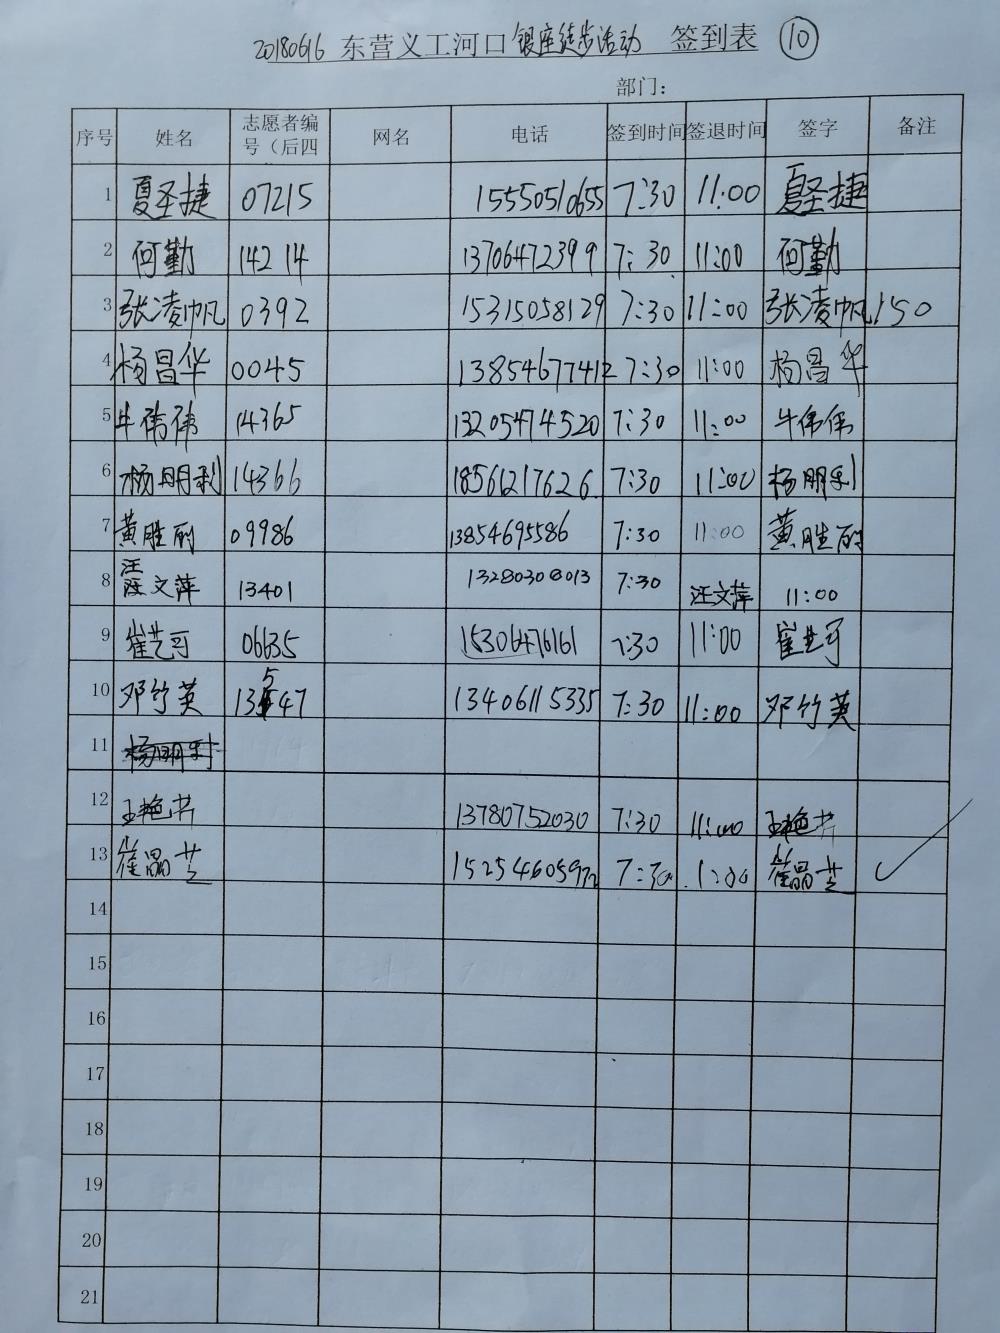 20180616 东营义工河口 银座徒步活动 签到表 ⑩
部门：
序号 姓名 志愿者编号（后四 网名 电话 签到时间 签退时间 签字 备注
1 夏圣捷 07215 15550510655 7:30 11:00 夏圣捷
2 何勤 14214 13706472399 7:30 11:00 何勤
3 张凌帆 0392 15315058129 7:30 11:00 张凌帆 150
4 杨昌华 0045 13854677412 7:30 11:00 杨昌华
5 牛伟伟 14365 13205474520 7:30 11:00 牛伟伟
6 杨明利 14366 18561217626 7:30 11:00 杨朋利
7 黄胜丽 09986 13854695586 7:30 11:00 黄胜丽
8 汪文萍 13401 13280308013 7:30 汪文萍 11:00
9 崔芝可 06635 15306476161 7:30 11:00 崔芝可
10 邓竹英 13547 13406115335 7:30 11:00 邓竹英
11 杨朋利
12 王艳芳 13780752030 7:30 11:00 王艳芳
13 崔晶芝 15254605972 7:30 11:00 崔晶芝 ✓
14
15
16
17
18
19
20
21